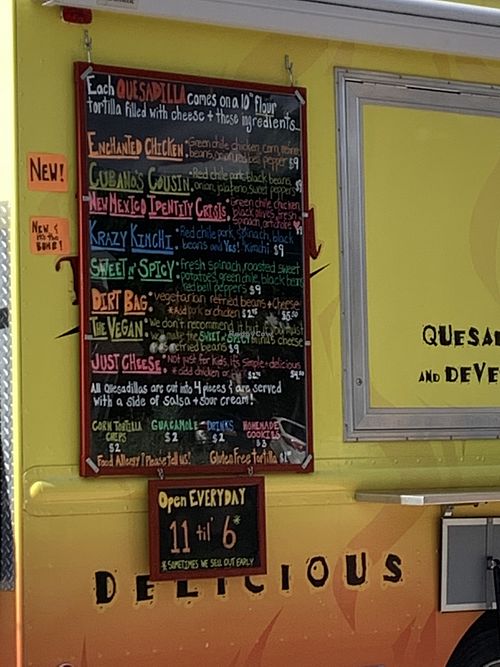 Each QUESADILLA comes on a 10" flour
tortilla filled with cheese + these ingredients...
ENCHANTED CHICKEN: Green chile chicken, corn, refried
beans, onion, red bell pepper $9
CUBANO'S COUSIN: Red chile pork, black beans,
onion, jalapeño, sweet peppers $9
NEW MEXICO IDENTITY CRISIS: Green chile chicken,
black olives, fresh
spinach, artichoke
KRAZY KIMCHI: Red chile pork, spinach, black
beans and Yes! Kimchi $9
SWEET N' SPICY: Fresh spinach, roasted sweet
potatoes, green chile, black beans
red bell peppers $9
DIRT BAG: vegetarian refried beans + Cheese
*Add pork or chicken $2.75 $5.50
THE VEGAN: we don't recommend it, but
make the SWEET N' SPICY minus cheese
refried beans $9
JUST CHEESE: Not just for kids, it's simple + delicious
*add chicken or
All Quesadillas are cut into 4 pieces & are served
with a side of salsa + sour cream!
CORN TORTILLA
CHIPS
$2
GUACAMOLE
$2
DRINKS
$2
HOMEMADE
COOKIES
$3
Food Allergy? Please tell us! Gluten Free tortilla $1
NEW!
NEW &
it's the
BOMB!
Open EVERYDAY
11 til' 6*
*SOMETIMES WE SELL OUT EARLY
DELICIOUS
QUESA
AND DEVE